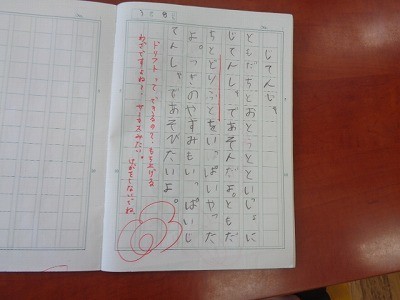 じてんしゃ
ともだちとおとうとといっしょに
じてんしゃであそんだよ。ともだ
ちとどりふとをいっぱいやった
よ。つぎのやすみもいっぱいじ
てんしゃであそびたいよ。
ドリフトって、できるので、もち上げる
わざですよね？サーカスみたい。
けがをしないでね。